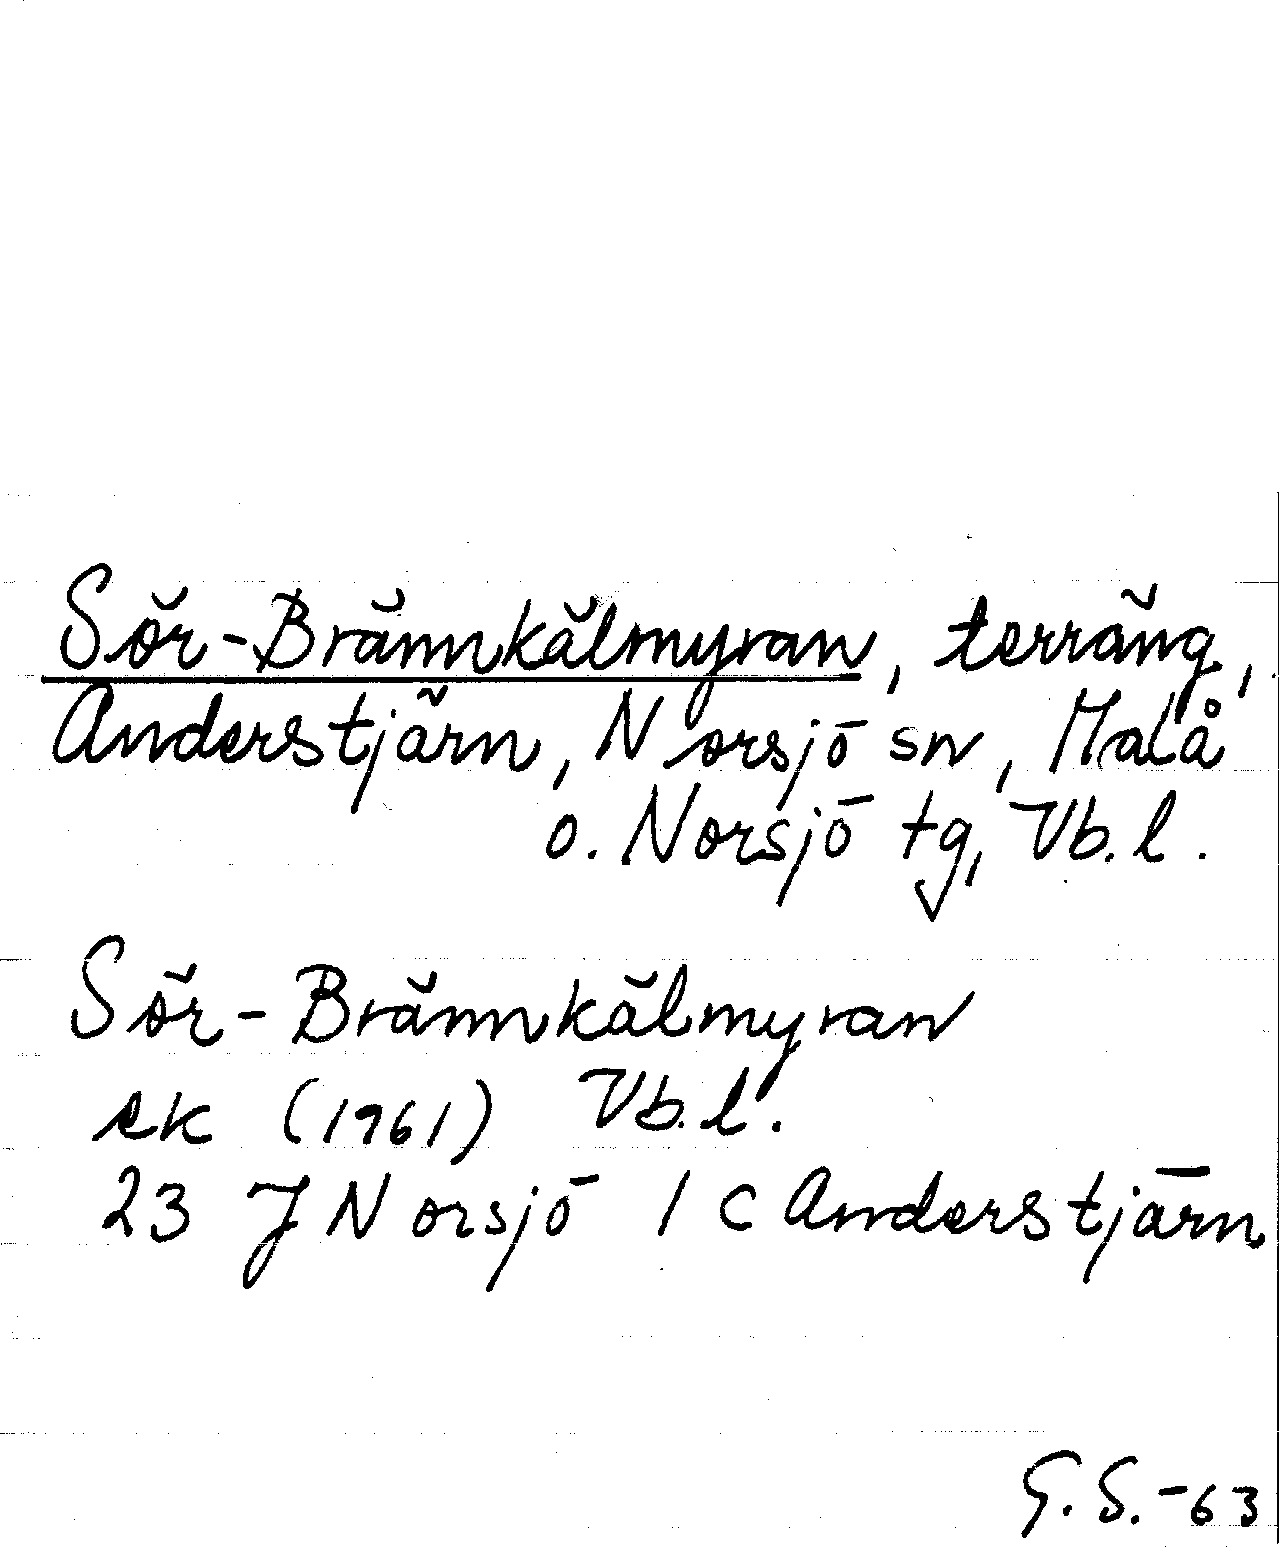 Sör-Brännkälmyran, terräng,
Anderstjärn, Norsjö sn, Malå
o. Norsjö tg, Vb. l.
Sör-Brännkälmyran
ek (1961) Vb. l.
23 J Norsjö 1 c Anderstjärn
G. S. -63